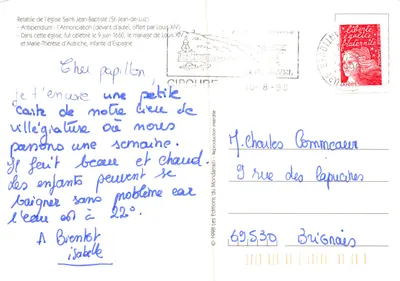 Retable de l'église Saint Jean-Baptiste (St-Jean-de-Luz)
- Antipendium : l'Annonciation (devant d'autel, offert par Louis XIV)
- Dans cette église, fut célébré le 9 juin 1660, le mariage de Louis XIV
et Marie-Thérèse d'Autriche, Infante d'Espagne
Cher papillon,
je t'envoie une petite
carte de notre lieu de
villégiature où nous
passons une semaine.
Il fait beau et chaud.
Les enfants peuvent se
baigner sans problème car
l'eau est à 22°.
A Bientôt
isabelle
© 1998 Les Editions du Mondarrain - Reproduction interdite
CIBOURE
10-8-98
liberté
égalité
fraternité
M. Charles Commcaur
9 rue des Capucines
69530 Brignais